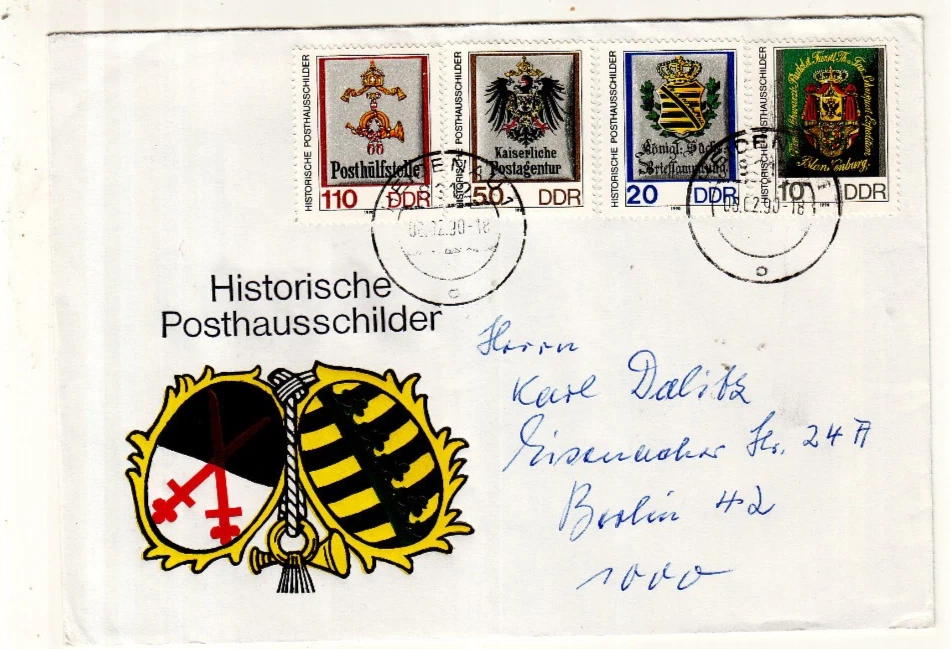 HISTORISCHE POSTHAUSSCHILDER
66
Posthülfstelle
110 DDR
1990
HISTORISCHE POSTHAUSSCHILDER
Kaiserliche
Postagentur
50 DDR
1990
HISTORISCHE POSTHAUSSCHILDER
Königl: Sächs:
Briefsammlung
20 DDR
1990
HISTORISCHE POSTHAUSSCHILDER
Blankenburg.
10 DDR
1990
06.02.90-18
06.02.90-18
Historische
Posthausschilder
Herrn
Karl Dalitz
Eisenacher Str. 24 A
Berlin 42
1000